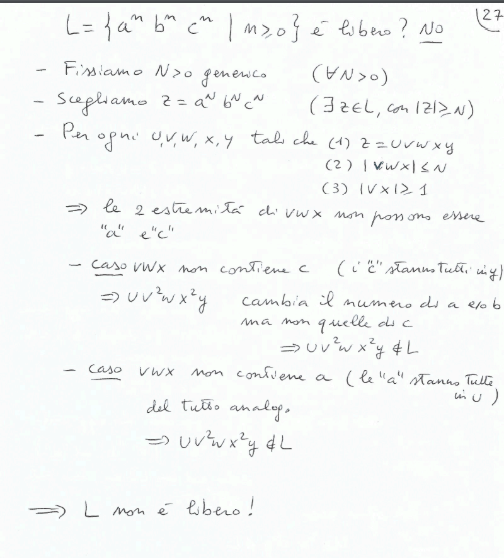 L = {aⁿ bⁿ cⁿ | n ≥ 0} é libero? NO
27
- Fissiamo N>0 generico (∀N>0)
- Scegliamo z = aᴺ bᴺ cᴺ (∃z∈L, con |z|≥N)
- Per ogni u,v,w,x,y tali che (1) z = uvwxy
(2) |vwx| ≤ N
(3) |vx| ≥ 1
⇒ le 2 estremità di vwx non possono essere
"a" e "c"
- caso vwx non contiene c (i "c" stanno tutti in y)
⇒ uv²wx²y cambia il numero di a e/o b
ma non quello di c
⇒ uv²wx²y ∉ L
- caso vwx non contiene a (le "a" stanno tutte
in u)
del tutto analog.
⇒ uv²wx²y ∉ L
⇒ L non é libero!